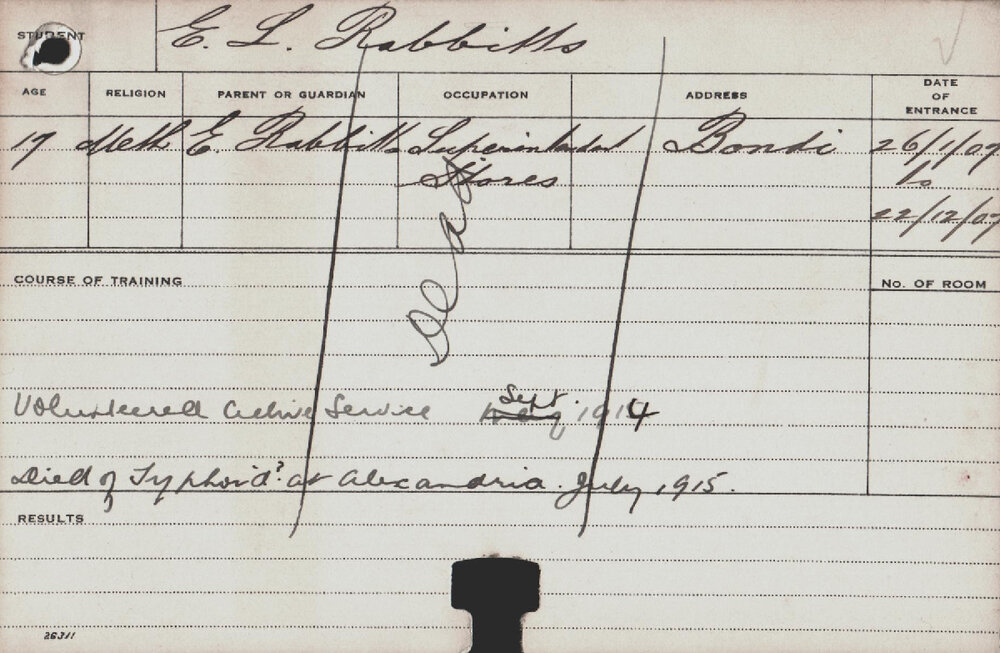 STUDENT E. L. Rabbitts
AGE RELIGION PARENT OR GUARDIAN OCCUPATION ADDRESS DATE OF ENTRANCE
19 Meth E. Rabbitts Superintendent Bondi 26/1/09
Stores to
22/12/09
Dead
COURSE OF TRAINING No. OF ROOM
Volunteered Active Service Sept. 1914
Died of Typhoid? at Alexandria. July 1915.
RESULTS
26311